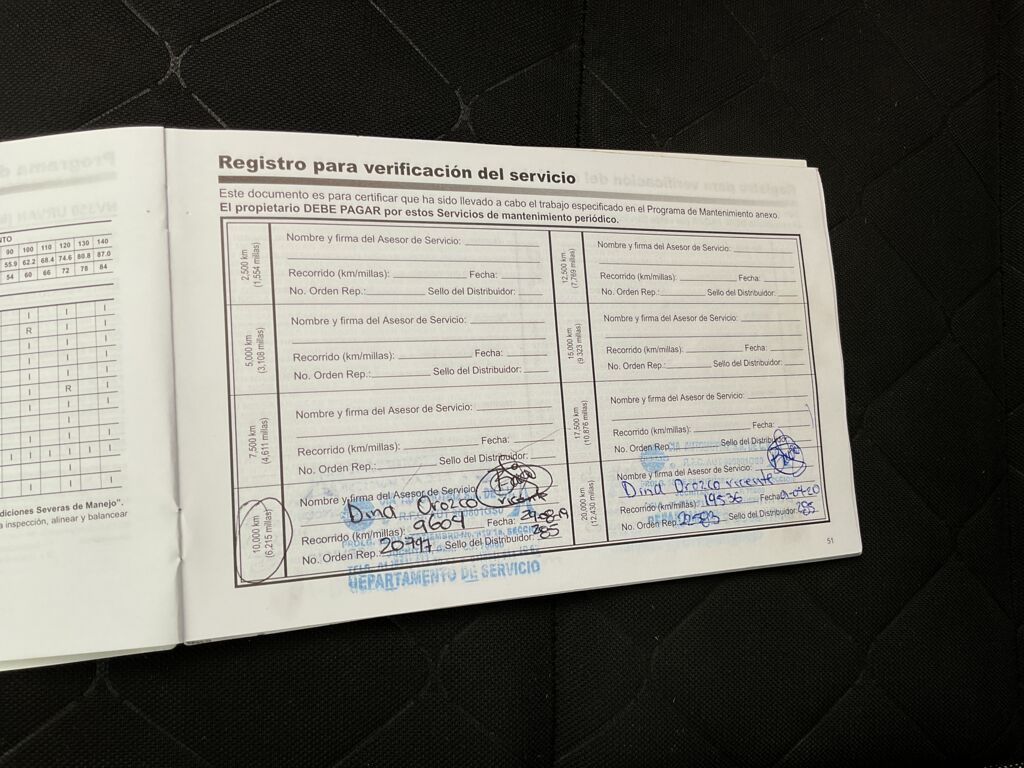 NTO
90 100 110 120 130 140
55.9 62.2 68.4 74.6 80.8 87.0
54 60 66 72 78 84
I I I
R
I I I
R
I I I I I I
diciones Severas de Manejo".
a inspección, alinear y balancear
Registro para verificación del servicio
Este documento es para certificar que ha sido llevado a cabo el trabajo especificado en el Programa de Mantenimiento anexo.
El propietario DEBE PAGAR por estos Servicios de mantenimiento periódico.
2,500 km
(1,554 millas)
Nombre y firma del Asesor de Servicio:
Recorrido (km/millas): Fecha:
No. Orden Rep.: Sello del Distribuidor:
5,000 km
(3,108 millas)
Nombre y firma del Asesor de Servicio:
Recorrido (km/millas): Fecha:
No. Orden Rep.: Sello del Distribuidor:
7,500 km
(4,611 millas)
Nombre y firma del Asesor de Servicio:
Recorrido (km/millas): Fecha:
No. Orden Rep.: Sello del Distribuidor:
10,000 km
(6,215 millas)
Nombre y firma del Asesor de Servicio
Dina Orozco Vicente
Recorrido (km/millas): 9604 Fecha:
No. Orden Rep.: 20797 Sello del Distribuidor: 285
DEPARTAMENTO DE SERVICIO
12,500 km
(7,769 millas)
Nombre y firma del Asesor de Servicio:
Recorrido (km/millas): Fecha:
No. Orden Rep.: Sello del Distribuidor:
15,000 km
(9,323 millas)
Nombre y firma del Asesor de Servicio:
Recorrido (km/millas): Fecha:
No. Orden Rep.: Sello del Distribuidor:
17,500 km
(10,876 millas)
Nombre y firma del Asesor de Servicio:
Recorrido (km/millas): Fecha:
No. Orden Rep. Sello del Distribuidor
20,000 km
(12,430 millas)
Nombre y firma del Asesor de Servicio:
Dina Orozco Vicente
Recorrido (km/millas): 19536 Fecha
No. Orden Rep. Sello del Distribuidor: 285
51